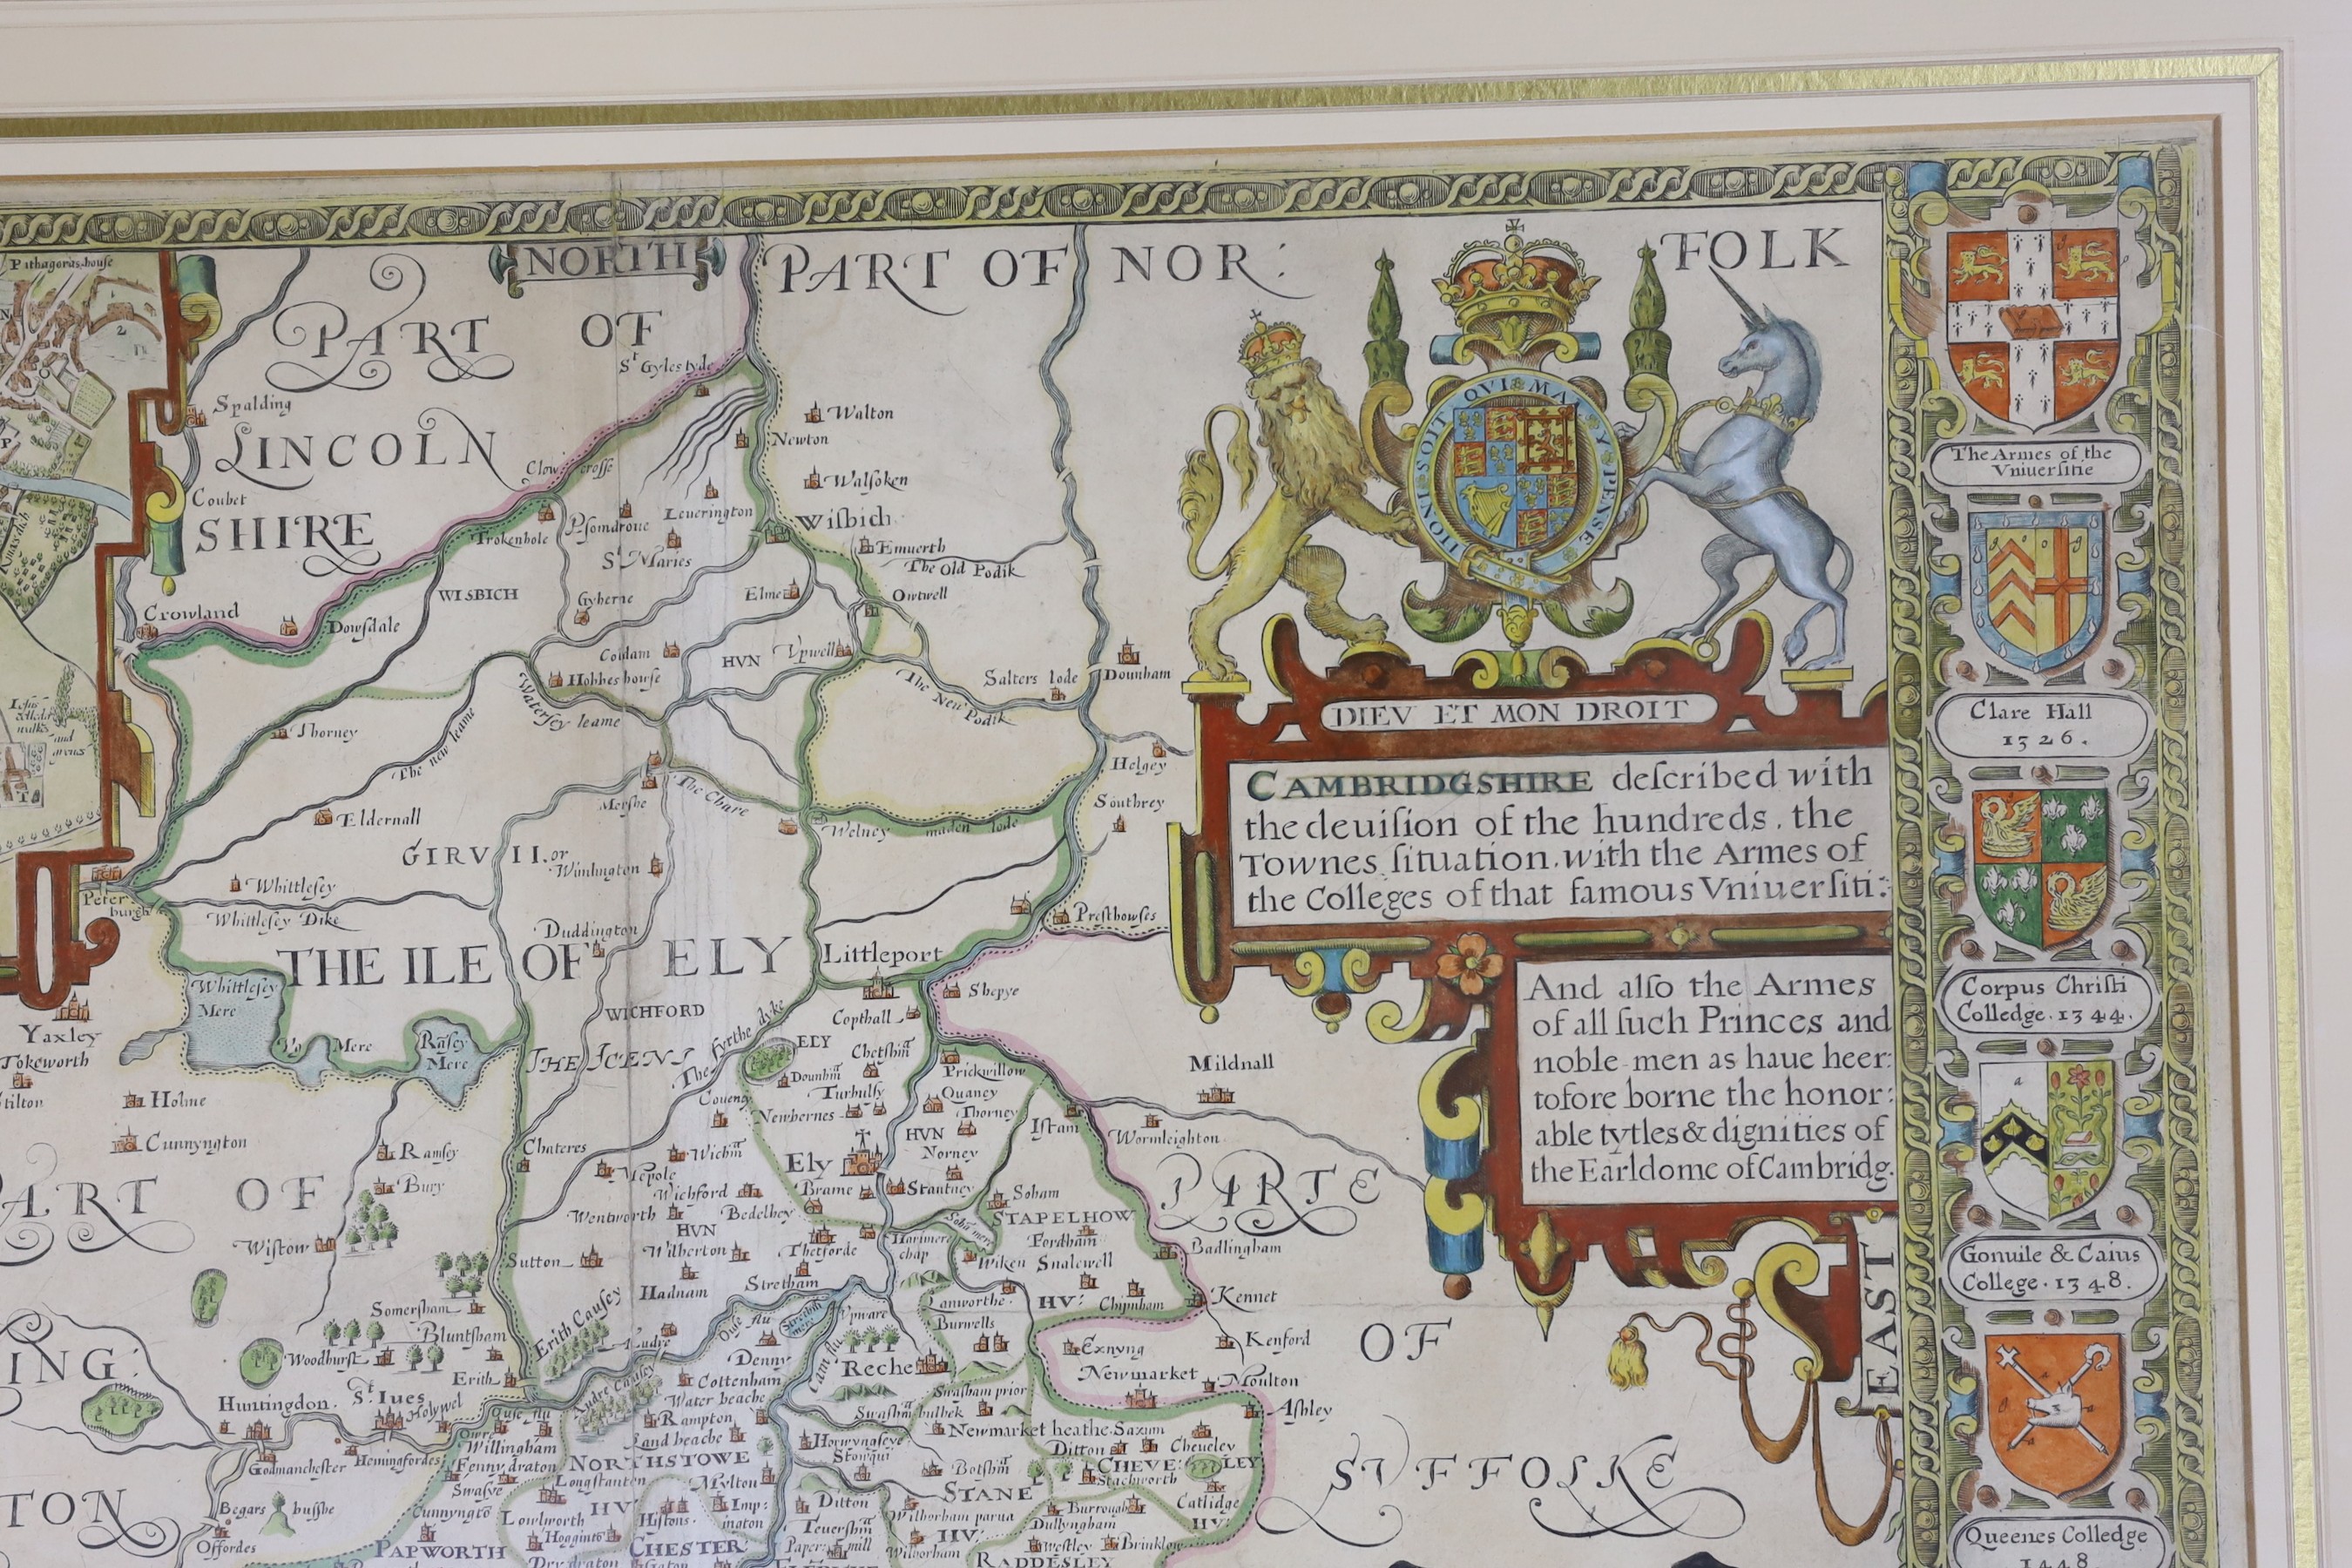 Pithagoras house
NORTH
PART OF NOR:
FOLK
PART OF
LINCOLN
SHIRE
St Gyles tyde
Spalding
Walton
Newton
Clow crosse
Walsoken
Coubet
Leuerington
Wisbich
Trokenhole
St Maries
Emuerth
The Old Podik
WISBICH
Gyherne
Elme
Owtwell
Crowland
Dowsdale
Coldam
HVN
Vpwell
Hobbes howse
Salters lode
Dounham
Watersey leame
The New Podik
Thorney
The new leame
Helgey
Mershe
The Chare
Southrey
Eldernall
Welney
maden lode
GIRVII. or
Wimlington
Whittlesey
Peter
burgh
Whittlesey Dike
Presthowses
Duddington
THE ILE OF ELY
Littleport
Whittlesey
Mere
Shepye
WICHFORD
Copthall
Yaxley
Mere
Ramsey
Mere
THE ICENI
The fyrthe dyke
ELY
Mildnall
Tokeworth
Dounhm
Prickwillow
Stilton
Holme
Turbulsy
Quaney
Coueney
Newbernes
Thorney
Cunnyngton
HVN
Istam
Wormleighton
Ramsey
Chateres
Wichm
Norney
Ely
Mepole
PART OF
Bury
Wichford
Brame
Stantney
Soham
PARTE
Wentworth
Bedelhey
STAPELHOW
HVN
Fordham
Wistow
Wilberton
Thetforde
Harimere
chap
Badlingham
Sutton
Wiken
Snalewell
Hadnam
Stretham
Lanworthe
HV:
Chypnham
Kennet
Somersham
Erith Causey
Ouse flu
Vpware
Burwells
Bluntsham
Audre
Kenford
OF
Woodhurst
Denny
Cam flu
Reche
Exnyng
ING:
Erith
Cottenham
Newmarket
Moulton
Huntingdon
St Iues
Holywel
Audre Causey
Water beache
Swafham prior
Ashley
Ouse flu
Rampton
Swafhm bulbek
Newmarket heathe
Saxum
Willingham
Land beache
Horwyngseye
Ditton
Cheueley
Godmanchester
Hemingfordes
Fenny draton
NORTHSTOWE
Stowqui
CHEVE: LEY
SVFFOLKE
Swasye
Longstanton
Mylton
Botshm
Stachworth
TON
Begars bushe
Cunnyngto
HV
Imp:
ington
Ditton
STANE
Catlidge
Lowlworth
Histons
Wilborham parua
Burrough
HV:
Teuershm
HV:
Dullyngham
Offordes
Hogginto
Paper mill
Wilborham
Westley
Brinklow
PAPWORTH
CHESTER
Dry draton
RADDESLEY
HONI SOIT QVI MAL Y PENSE
DIEV ET MON DROIT
CAMBRIDGSHIRE deſcribed with
the deuiſion of the hundreds, the
Townes ſituation, with the Armes of
the Colleges of that famous Vniuerſiti:
And alſo the Armes
of all ſuch Princes and
noble-men as haue heer:
tofore borne the honor:
able tytles & dignities of
the Earldome of Cambridg.
EAST
The Armes of the
Vniuerſitie
Clare Hall
1326.
Corpus Chriſti
Colledge. 1344.
Gonuile & Caius
College. 1348.
Queenes Colledge
1448